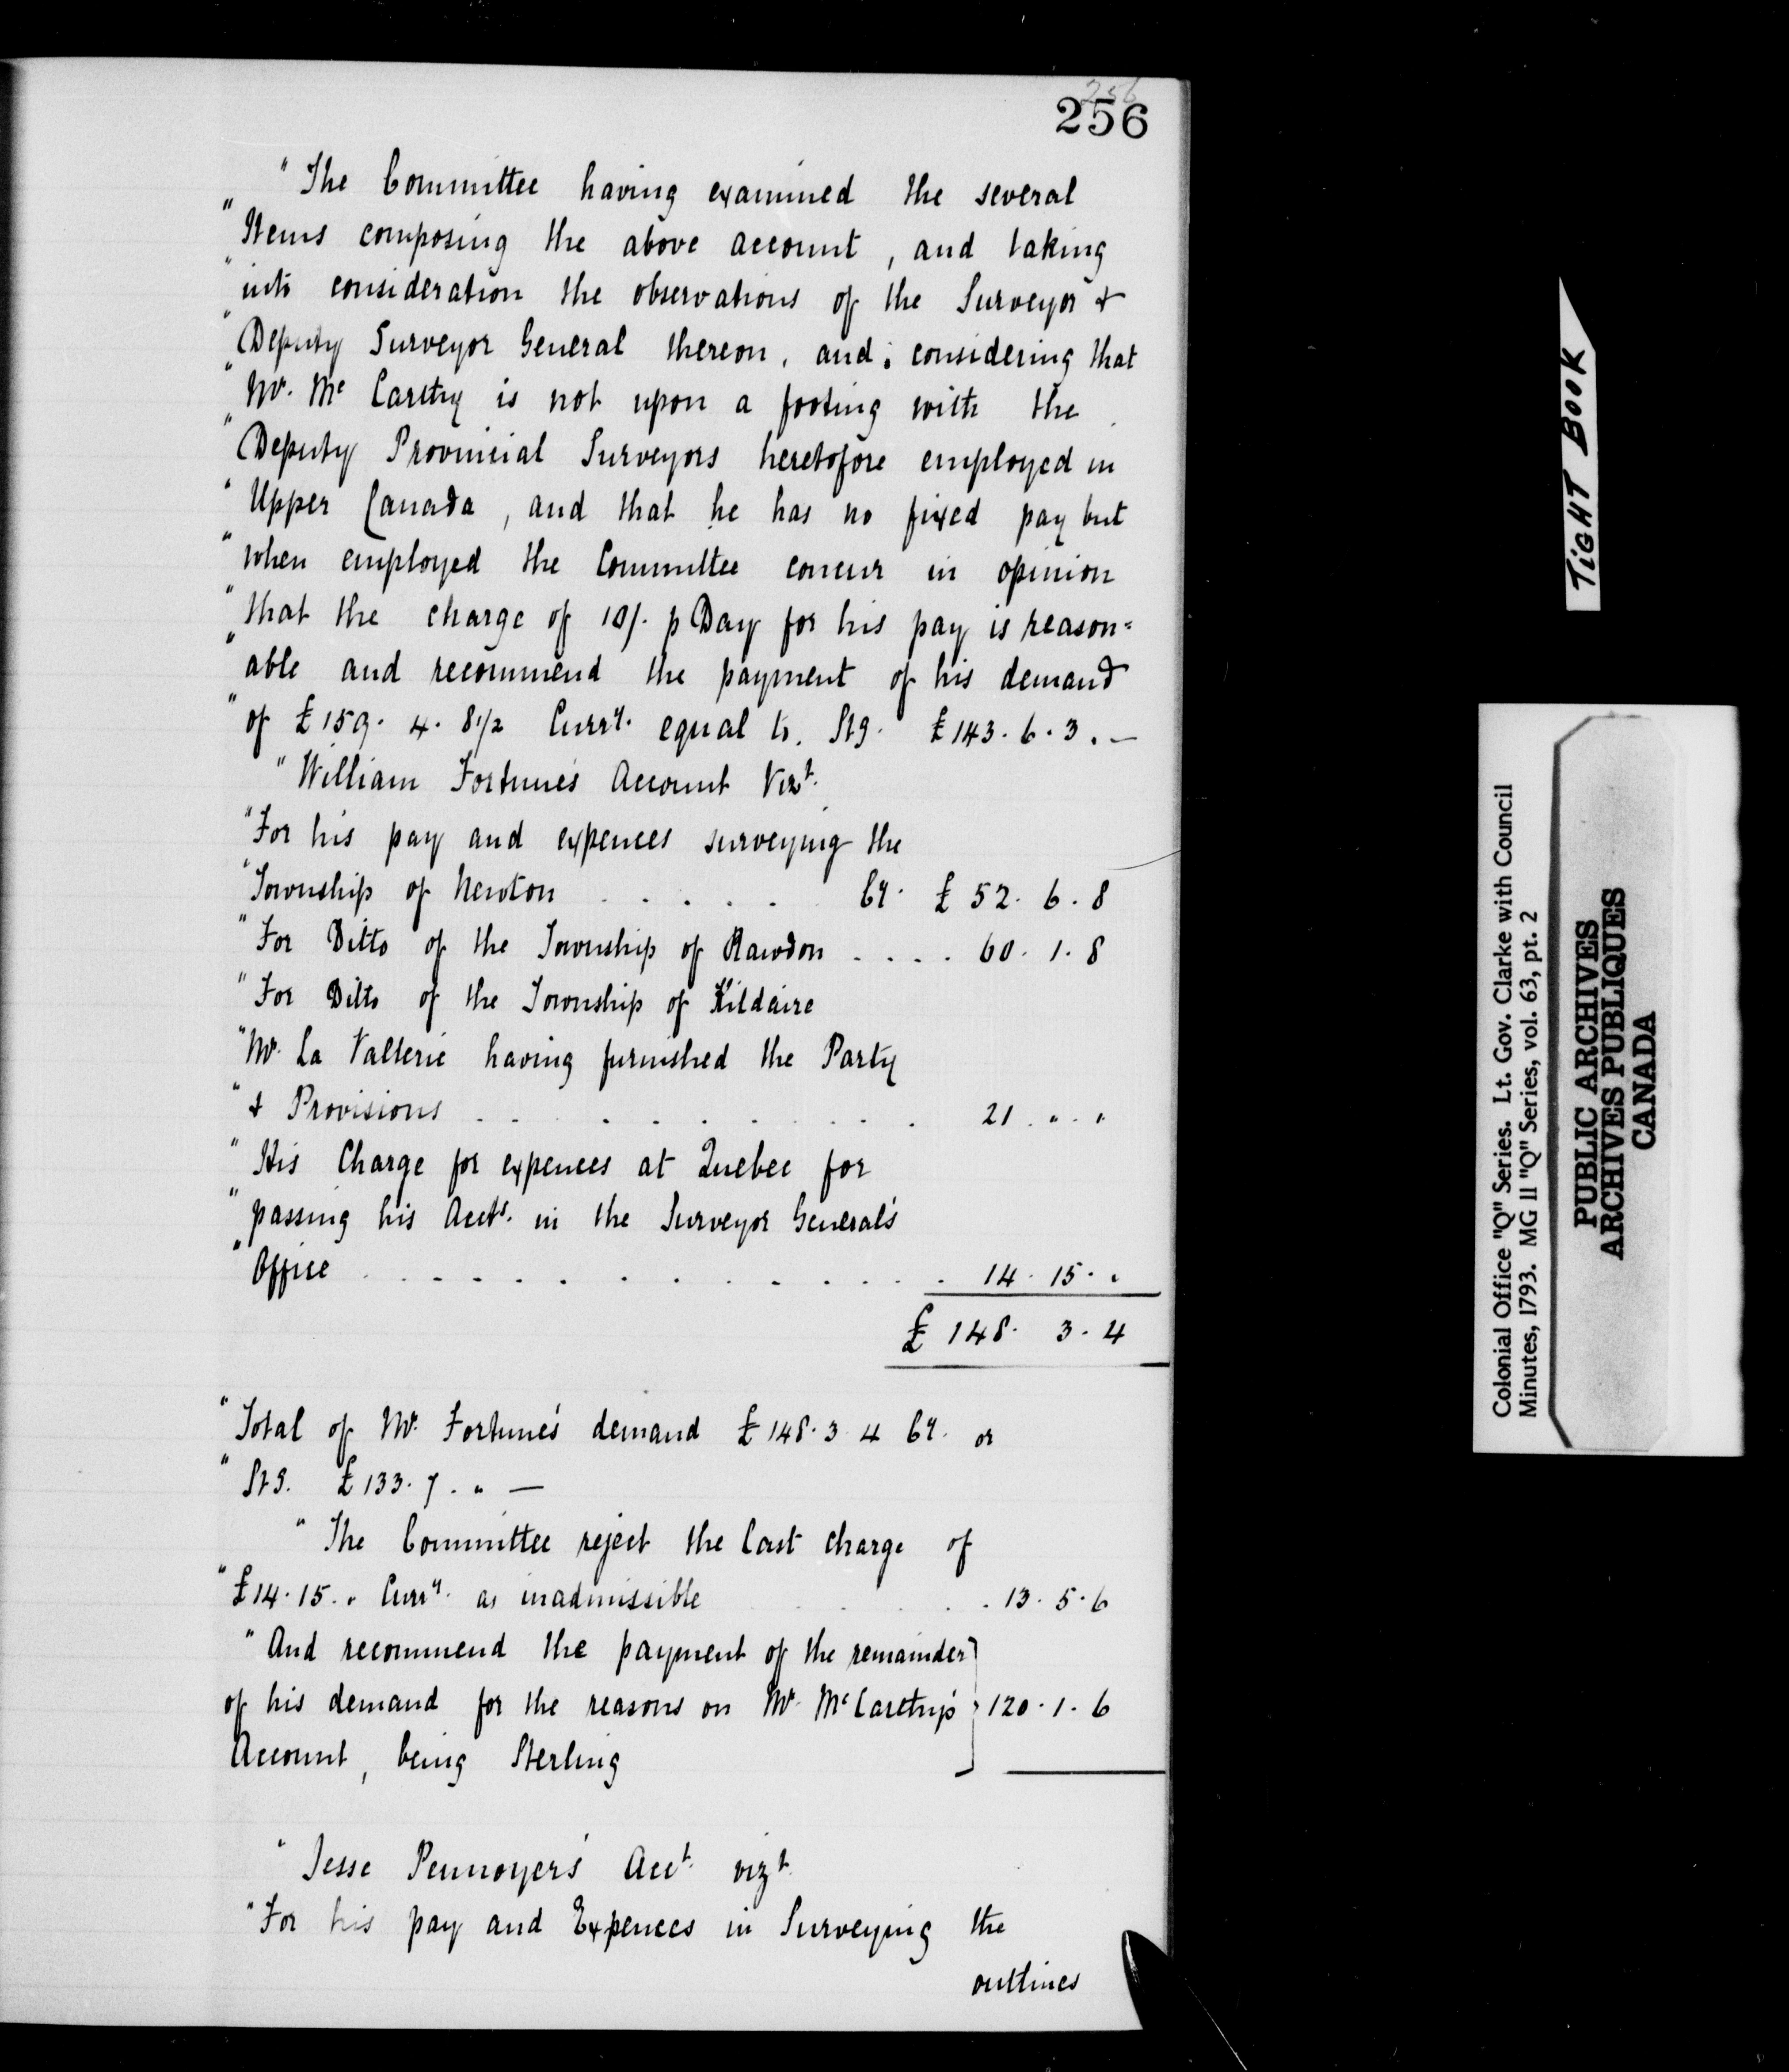 256
256
" The Committee having examined the several
" Items composing the above account, and taking
" into consideration the observations of the Surveyor &
" Deputy Surveyor General thereon, and considering that
" Mr. Mc Carthy is not upon a footing with the
" Deputy Provincial Surveyors heretofore employed in
" Upper Canada, and that he has no fixed pay but
" when employed the Committee concur in opinion
" that the charge of 10/. p Day for his pay is reason=
" able and recommend the payment of his demand
" of £159. 4. 8 1/2 Curry. equal to. Stg. £143. 6. 3. —
" William Fortune's Account Vizt.
" For his pay and expences surveying the
" Township of Newton . . . . . Cy. £ 52. 6. 8
" For Ditto of the Township of Rawdon . . . . 60. 1. 8
" For Ditto of the Township of Kildaire
" Mr. La Valterie having furnished the Party
" & Provisions . . . . . . . . . 21. " . "
" His Charge for expences at Quebec for
" passing his Accts. in the Surveyor General's
" Office . . . . . . . . . . . . 14. 15. "
£ 148. 3. 4
" Total of Mr. Fortune's demand £148. 3 4 Cy. or
" Stg. £133. 7. " —
" The Committee reject the last charge of
" £14. 15. " Curry. as inadmissible . . . 13. 5. 6
" And recommend the payment of the remainder
of his demand for the reasons on Mr. McCarthy's 120. 1. 6
Account, being Sterling
" Jesse Pennoyer's Acct. vizt.
" For his pay and Expences in Surveying the
outlines
TIGHT BOOK
Colonial Office "Q" Series. Lt. Gov. Clarke with Council
Minutes, 1793. MG 11 "Q" Series, vol. 63, pt. 2
PUBLIC ARCHIVES
ARCHIVES PUBLIQUES
CANADA